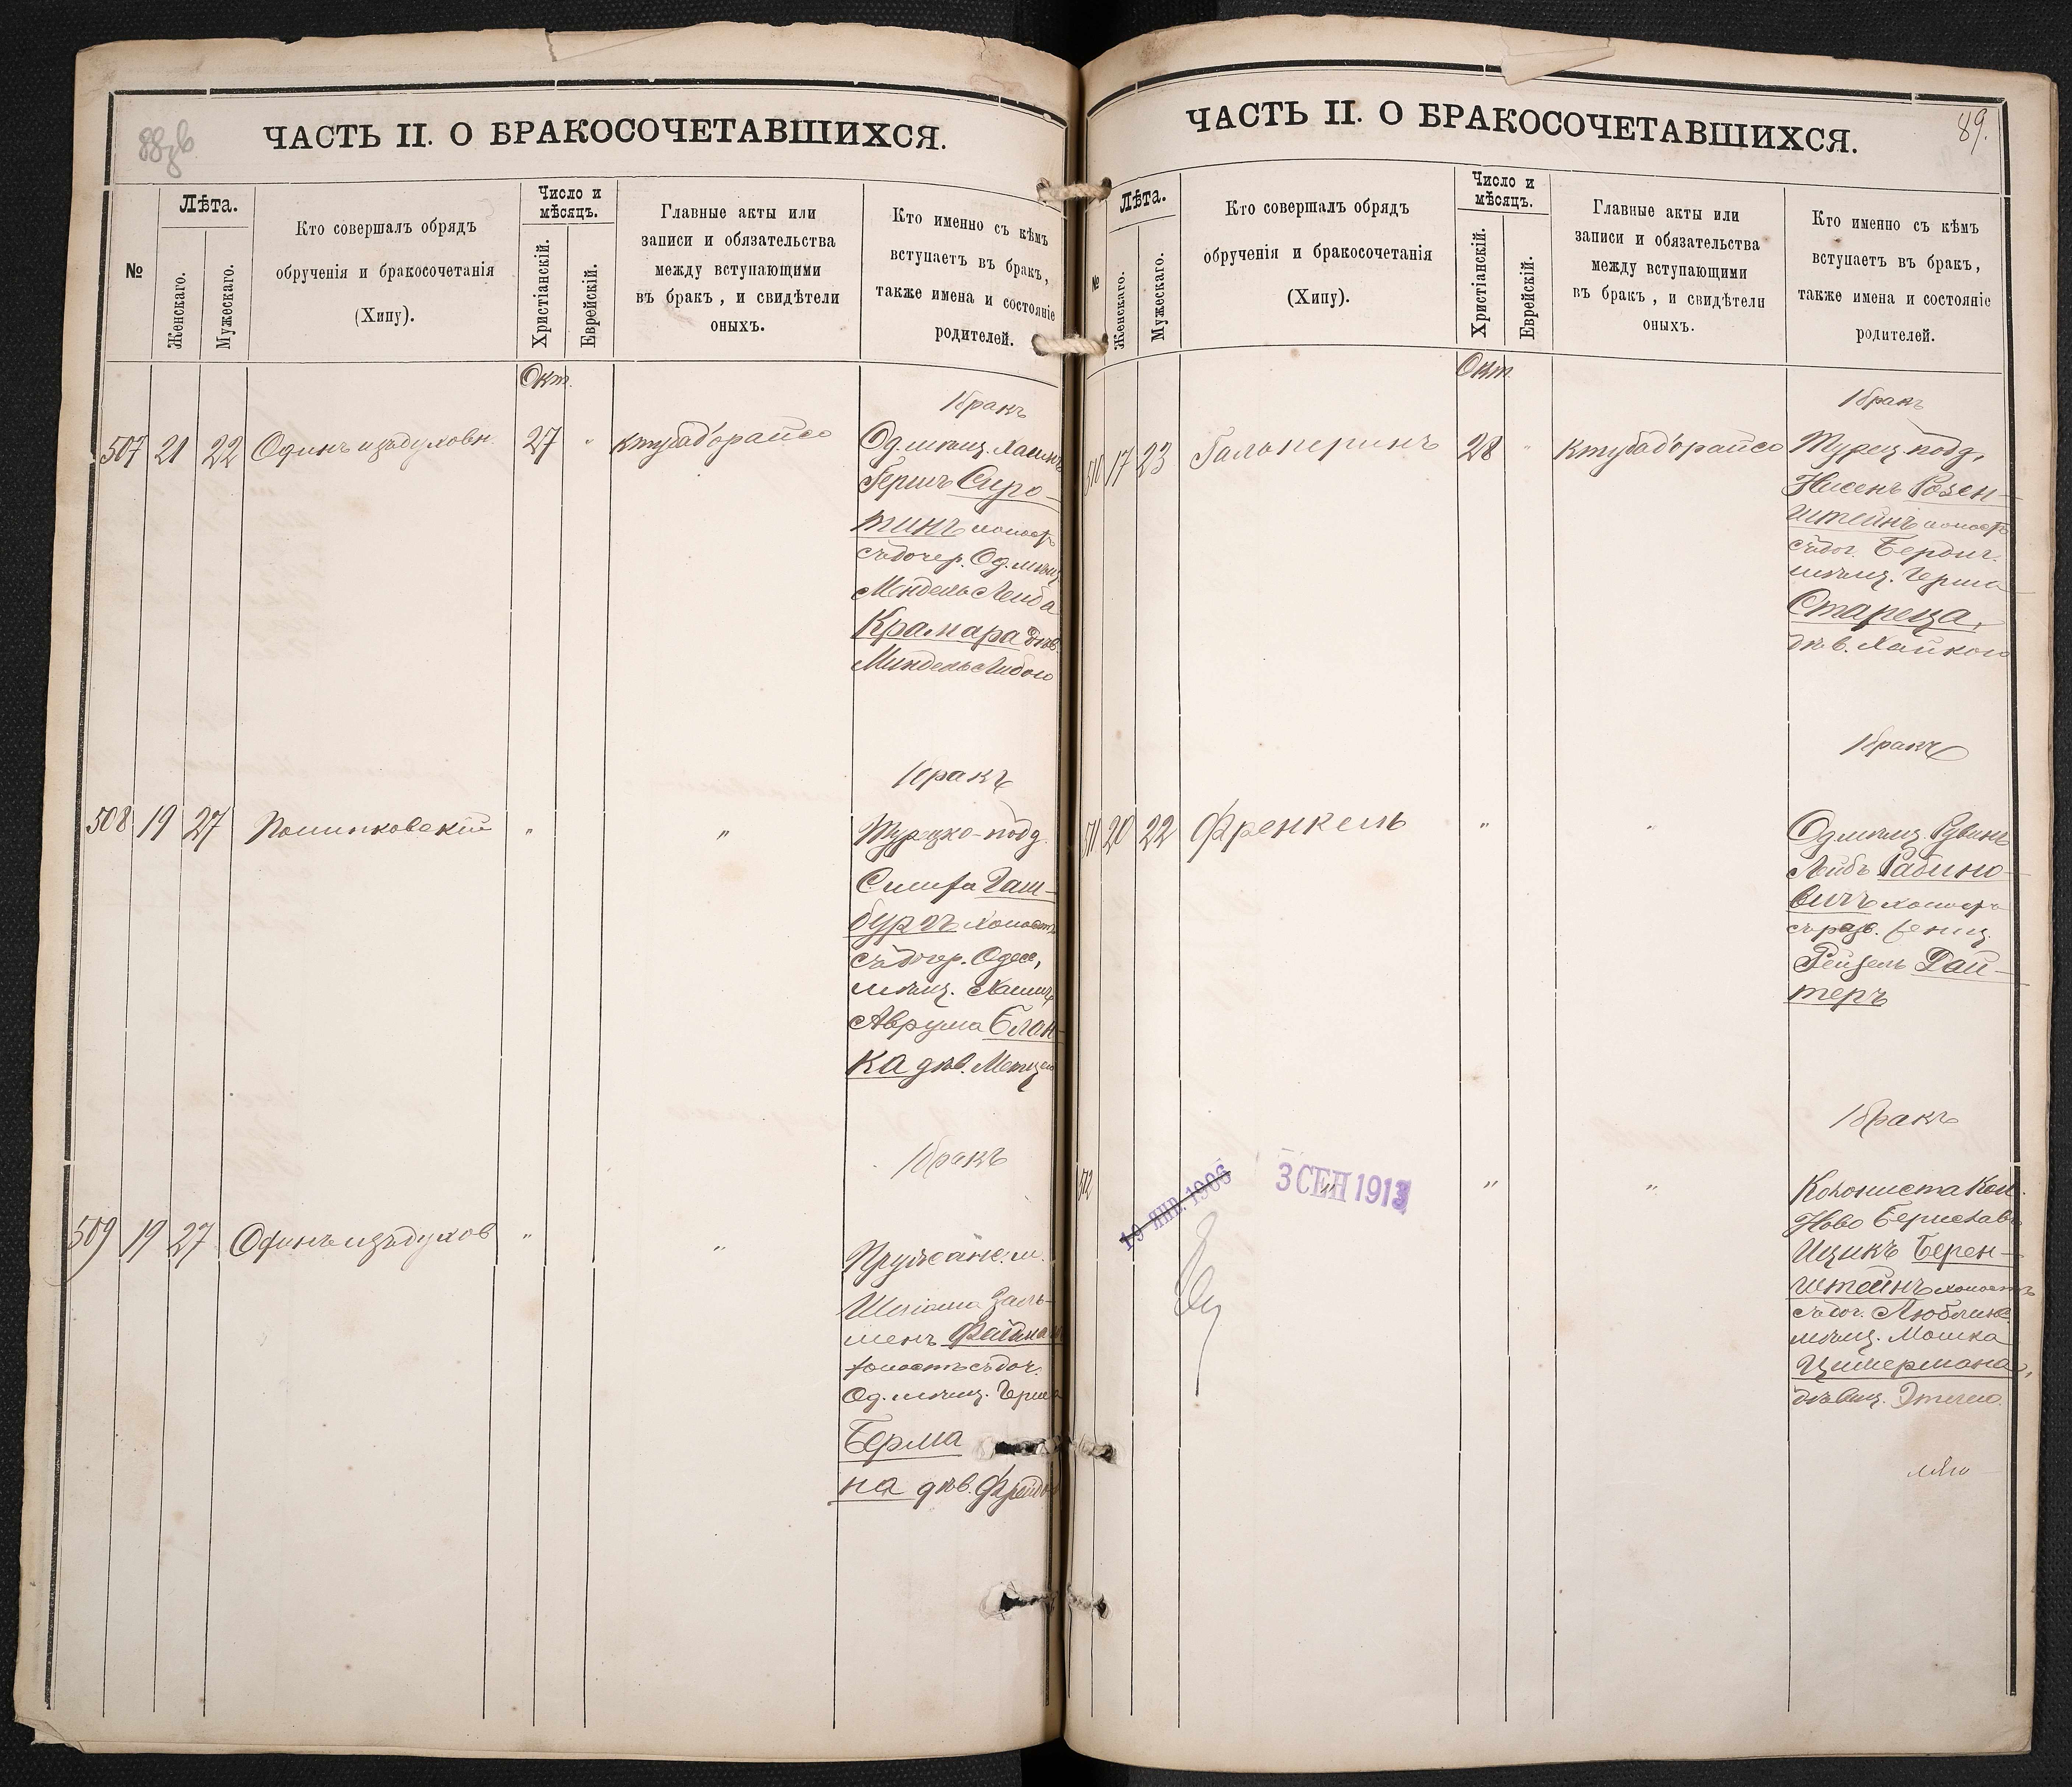 88 зв
ЧАСТЬ II. О БРАКОСОЧЕТАВШИХСЯ.
№
Лѣта.
Женскаго.
Мужескаго.
Кто совершалъ обрядъ
обрученія и бракосочетанія
(Хипу).
Число и
мѣсяцъ.
Христіанскій.
Еврейскій.
Главные акты или
записи и обязательства
между вступающими
въ бракъ, и свидѣтели
оныхъ.
Кто именно съ кѣмъ
вступаетъ въ бракъ,
также имена и состояніе
родителей.
Окт.
1 бракъ
507 21 22 Одинъ изъ духовн. 27 " ктуба д'орайсо Од. мѣщ. Хаимъ
Гершъ Сиро-
тинъ холост
съ дочер. Од. мѣщ
Мендель Лейба
Крамара дѣв.
Миндель Либою
1 бракъ
508 19 27 " " Турецко-подд.
Гам-
бургъ холост
съ дочер. Одес,
мѣщ. Хаима
Аврума Блан-
ка дѣв.
1 бракъ
509 19 27 Одинъ изъ духов " " Пружанс. м.
Шліома Заль-
менъ Файнма
холостъ съ доч.
Од. мѣщ. Герша
Берма
на дѣв. Фрейд
89.
ЧАСТЬ II. О БРАКОСОЧЕТАВШИХСЯ.
№
Лѣта.
Женскаго.
Мужескаго.
Кто совершалъ обрядъ
обрученія и бракосочетанія
(Хипу).
Число и
мѣсяцъ.
Христіанскій.
Еврейскій.
Главные акты или
записи и обязательства
между вступающими
въ бракъ, и свидѣтели
оныхъ.
Кто именно съ кѣмъ
вступаетъ въ бракъ,
также имена и состояніе
родителей.
Окт.
1 бракъ
510 17 23 Гальперинъ 28 " ктуба д'орайсо Турец. подд,
Нисенъ Розен-
штейнъ холост
съ доч. Бердич.
мѣщ. Герша
Стареца,
дѣв. Хайкою
1 бракъ
511 20 22 Френкель " " Од. мѣщ. Рувинъ
Лейбъ Рабино-
вичъ холост
съ разв.
Рейзель Рай-
теръ
1 бракъ
512 " " " Колониста Кол.
Ново Бериславъ
Ицикъ Берен-
штейнъ холостъ
съ доч. Люблин.
мѣщ. Мошка
Цимермана,
дѣвиц. Этлею.
19 ЯНВ. 1906
3 СЕН 1913